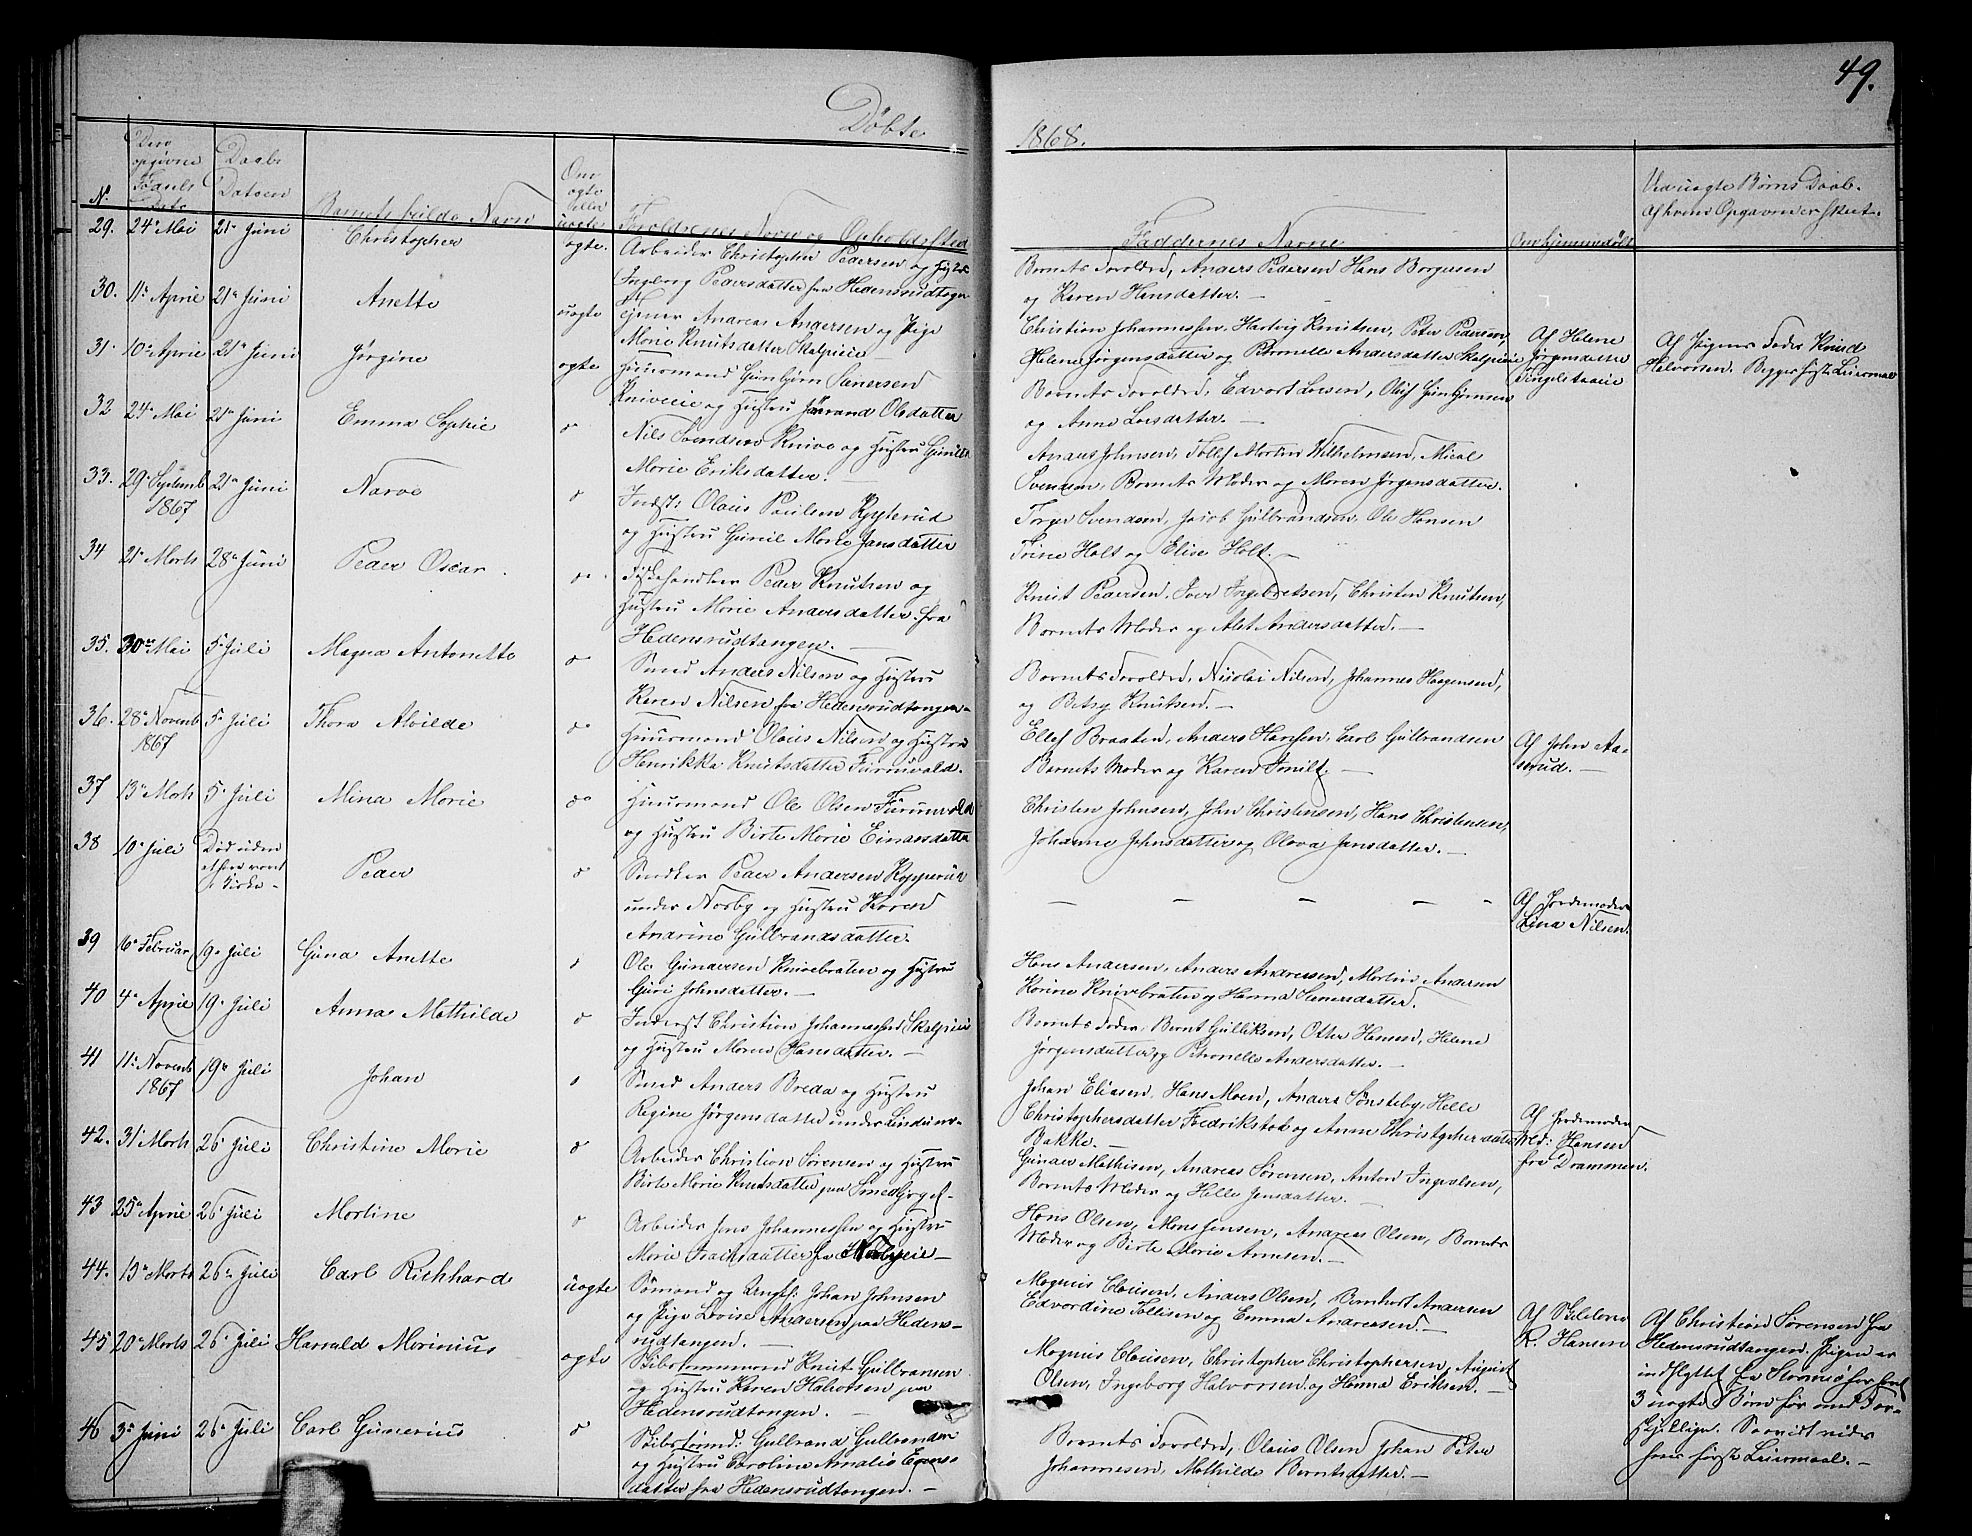 49.
Døbte
1868.
N.
opgivne
Daabs
Datoen
Barnets fulde Navn
Om
ægte
eller
uægte
Forældrenes Navn og Opholdssted
Faddernes Navne
Om hjemmedøbt
Ved uægte Børns Daab.
Af hvem Opgaven er skeet.
29. 24de Mai 21de Juni Christopher ægte. Arbeider Christopher Pedersen og Hustru
Ingeborg Pedersdatter fra Hedensrudtangen
Barnets Forældre, Anders Pedersen Hans Borgersen
og Karen Hansdatter. —
30. 11te April 21de Juni Anette uægte Andreas Andersen og Pige
Marie Knutsdatter Skalpeie —
Christian Johannessen, Hartvig Knutsen, Peter Pedersen,
Helene Jørgensdatter og Petronelle Andersdatter Skalpeie
Af Helene
Jørgensdatter
Af Pigens Fader Knud
Halvorsen. Begges første Leiermaal
31. 10de April 21de Juni Jørgine ægte Huusmand Gunbjørn
og Hustru Olsdatter
Barnets Forældre, Edvart Larsen, Oluf Gunbjørnsen
og Anne Larsdatter. —
32 24de Mai 21de Juni Emma Sophie do Nils Svendsen Knive og Hustru Gunild
Marie Eriksdatter.
Anders Johnsen, Tollef Martin Wilhelmsen,
Svendsen, Barnets Moder og Maren Jørgensdatter.
33. 29 Septemb 21de Juni Narve do Inderst: Olaus Paulsen
1867
og Hustru Gunil Marie Jansdatter
Torger Svendsen, Jacob Gulbrandsen, Ole Hansen
Trine Holt og Elise Holt. —
34 21de Marts 28de Juni Peder Oscar. do. Fiskehandler Peder Knutsen og
Hustru Marie Andersdatter fra
Hedensrudtangen. —
Knut Pedersen, Iver Ingebretsen, Christen Knutsen,
Barnets Moder og Alet Andersdatter. —
35. 30te Mai 5te Juli Magna Antonette do Smed Anders Nilsen og Hustru
Karen Nilsen fra Hedensrudtangen
Barnets Forældre, Nicolai Nilsen, Johannes Haagensen,
og Betsy Knutsen. —
36. 28de Novemb 5te Juli Thora Alvilde do Huusmand Olaus Nilsen og Hustru
1867
Henrikka Knutsdatter Furuvald.
Ellef Braaten, Anders Hansen, Carl Gulbrandsen
Barnets Moder og Karen
Af John Aa-
serud. —
37 13de Marts 5te Juli Mina Marie do Huusmand Ole Olsen Furuvald
og Hustru Birte Marie Einarsdatter
Christen Johnsen, John Christensen, Hans Christensen,
Johanne Johnsdatter og Olava Jansdatter. —
38 10de Juli Død uden Peder do Snedker Peder Andersen Kopperud
under Norby og Hustru Karen
Andrine Gulbrandsdatter.
— — — — —
Af Jordemoder
Lina Nilsen.
39 6te Februar 19de Juli Guna Anette do Ole Gundersen Knivebraten og Hustru
Guri Johnsdatter. —
Hans Andersen, Anders Andreasen, Martin Andersen
Karine Knivebraten og Hanna
40 4de April 19de Juli Anna Mathilde do Inderst Christian Johannessen Skalpeie
og Hustru Maren Hansdatter. —
Barnets Fader, Bernt Gulliksen, Otter Hansen, Helene
Jørgensdatter og Petronelle Andersdatter. —
41 11te Novemb 19de Juli Johan do Smed Anders Breda og Hustru
1867
Regine Jørgensdatter under Lindum. —
Johan Eliasen, Hans Moen, Anders Sønsteby, Helle
Christophersdatter Fredrikstok og Anne Christopherdatter
Bakke. —
Af Jordemoder
Hansen
fra Drammen.
42. 31 Marts 26 Juli Christine Marie do Arbeider Christian Sørensen og Hustru
Birte Marie Knutsdatter paa
Gunder Mathisen, Andreas Sørensen, Anton Ingvalsen,
Barnets Moder og Helle Jensdatter. —
43 25de April 26 Juli Martine do Arbeider Jens Johannessen og Hustru
Marie Isaksdatter fra Skalpeie —
Hans Olsen, Mons Jensen, Andreas Olsen, Barnets
Moder og Birte Marie Arnesen. —
44. 13de Marts 26de Juli Carl Richhard uægte Sømand og Ungk: Johan Johnsen
og Pige Lovise Andersen paa Hedens-
rudtangen. —
Magnus Clausen, Anders Olsen, Bernhart Andersen
Edvardine Tollisen og Emma Andreasen. —
Af
K. Hansen
Af Christian Sørensen fra
Hedensrudtangen. Pigen er
indflyttet fra Strømsø har havt
3 uægte Børn før med For-
skjellige. Saavidt vides
hans første Leiermaal. —
45 20de Marts 26 Juli Harrald Marinius ægte Skibstømmermand Knut Gulbransen
og Hustru Karen Halvorsen paa
Hedensrudtangen. —
Magnus Clausen, Christopher Christophersen, August
Olsen, Ingeborg Halvorsen og Hanna Eriksen. —
46 3de Juni 26 Juli Carl Gunerius do Skibstømmd: Gulbrand Gulbrandsen
og Hustru Caroline Amalie Evens-
datter fra Hedensrudtangen. —
Barnets Forældre, Olaus Olsen Johan Peter
Johannesen, Mathilde Berntsdatter. —